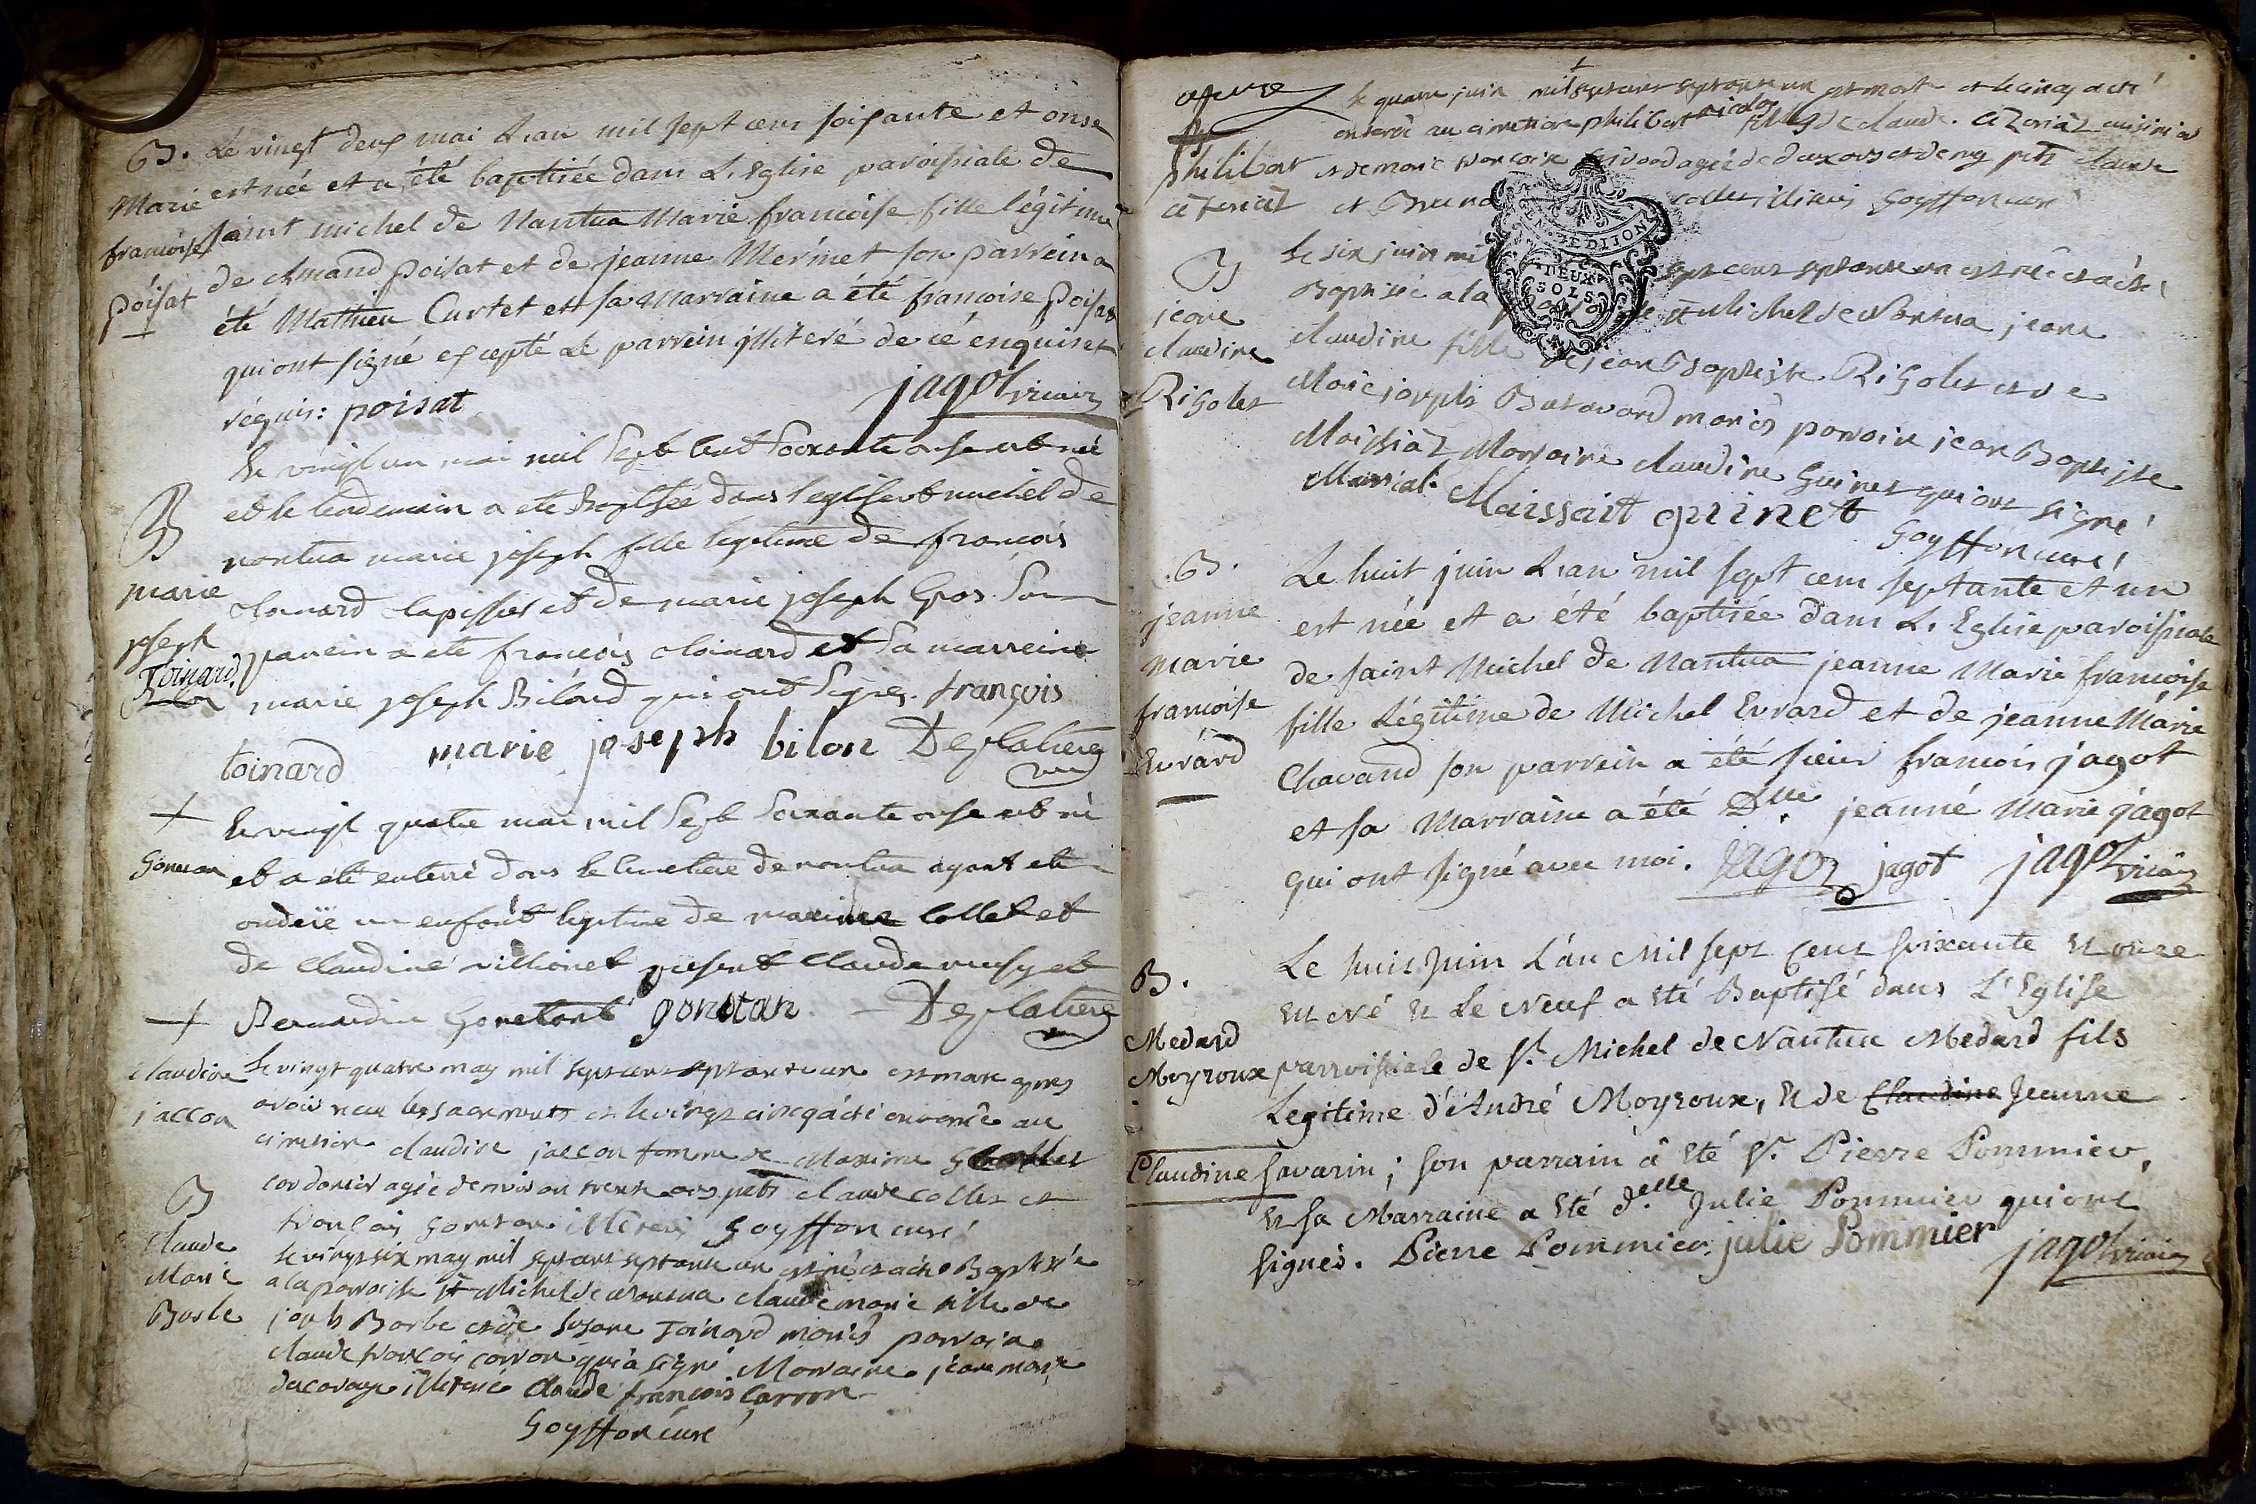 B. Le vingt deux mai L'an mil sept cens soixante et onse
Marie est née et a été baptisée dans L'Eglise paroissiale de
francoise saint michel de Nantua Marie francoise fille légitime
poisat de Amand poisat et de jeanne Mermet son parrein a
été Mathieu Curtet et sa Marraine a été francoise poisat
qui ont signé excepté Le parrein illiteré de ce enquis et
réquis: poisat jagot vicair
Le vingt un mai mil Sept Cent Soixante onse est né
B et le lendemain a ete Baptisée dans l'eglise st michel de
nantua marie joseph fille legitime de françois
marie toinard et de marie joseph Gros. Son
joseph parrein a ete françois toinard et Sa marreine
Toinard. marie joseph Bilond qui ont Signez. françois
toinard marie joseph bilon Deglatiere
vic
+ Le vingt quatre mai mil Sept Soixante onse est né
Goneton et a été enterré dans le Cimetiere de nantua ayant ete
ondoïé un enfant legitime de maxime Collet et
de Claudine villionet present Claude et
+ Bernardin Goneton gonetan. Deglatiere
Claudine Le vingt quatre may mil sept cent septante un est morte apres
jaccon avoir recu les sacrements et le vingt cinq a été enterrée au
cimetiere claudine jaccon femme de Maxime
cordonier agée denviron trente ans pnts claude collet et
B françois goneton illiterés Goyffon curé
Claude Le vingt six may mil sept cent septante un est née et a été Baptisée
Marie a la paroisse st Michel de Nantua claude marie fille de
Barbe joseph Barbe et de susane Toinard mariés parrain
claude françois carron qui a signé Marraine jeane marie
illiterée Claude françois Carron
Goyffon curé
Le quatre juin mil sept cent septante un est mort et le cinq a été
enterré au cimetiere philibert nicolas fils de claude
philibert et de marie francoise agée de deux ans et demy pnts claude
et illiterés Goyffon curé
DEUX
SOLS
GEN. DE DIJON
B Le six juin mil sept cent septante un est née et a été
jeane Baptisée a la paroisse st Michel de Nantua jeane
claudine claudine fille de jean Baptiste Rigolet et de
Rigolet Marie joseph Butavand mariés parrain jean Baptiste
Maissiaz Marraine claudine Guinet qui ont signé
Maissait guinet
Goyffon curé
.B. Le huit juin L'an mil sept cens septante et un
jeanne est née et a été baptisée dans L'Eglise paroissiale
marie de saint Michel de Nantua jeanne Marie francoise
francoise fille Légitime de Michel Evrard et de jeanne Marie
Evrard Chavand son parrein a été sieur francois jagot
et sa Marraine a été Dlle. jeanne Marie jagot
qui ont signé avec moi. jagot jagot jagot vicair
Le huit Juin L'an Mil sept Cent soixante et onze
B. est né et Le Neuf a été Baptisé dans L'Eglise
Medard parroissiale de St. Michel de Nantua Medard fils
Moyroux Legitime d'André Moyroux, et de Claudine Jeanne
Claudine Savarin; son parrain a été Sr. Pierre Pommier,
et sa Marraine a été d.elle Julie Pommier qui ont
signés. Pierre Pommier. julie Pommier jagot vicair